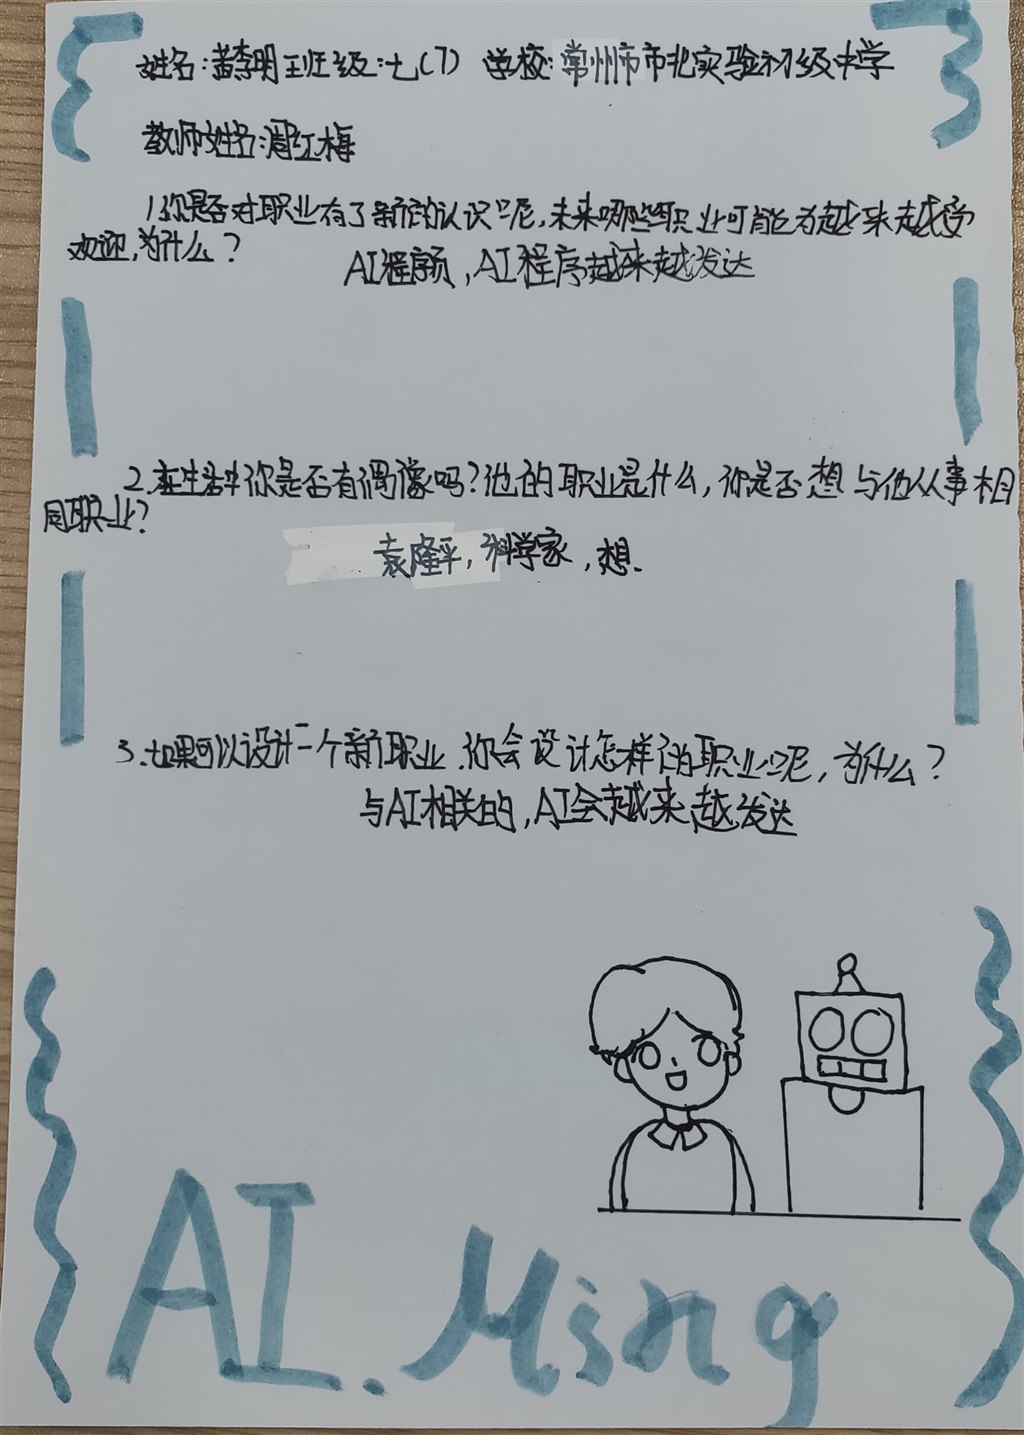 姓名:黄李明 班级:七(7) 学校:常州市市北实验初级中学
教师姓名:周红梅
1.你是否对职业有了新的认识呢,未来哪些职业可能为越来越受
欢迎,为什么?
AI程序员,AI程序越来越发达
2.在生活中你是否有偶像吗?他的职业是什么,你是否想与他从事相
同职业?
袁隆平,科学家,想.
3.如果可以设计一个新职业.你会设计怎样的职业呢,为什么?
与AI相关的,AI会越来越发达
AI.Ming